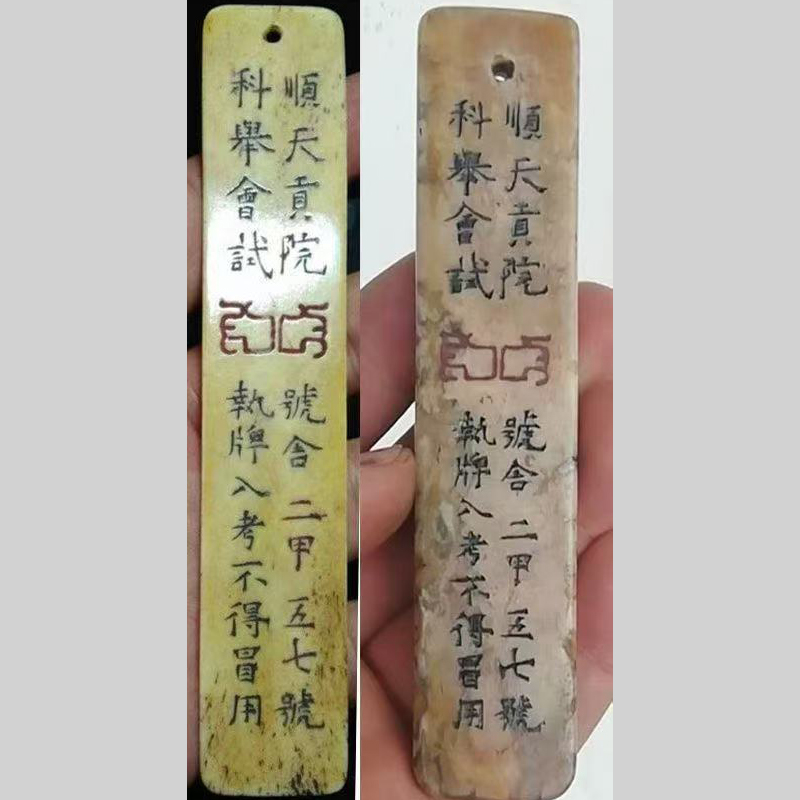 順天貢院
科舉會試
號舍二甲五七號
執牌入考不得冒用
順天貢院
科舉會試
號舍二甲五七號
執牌入考不得冒用